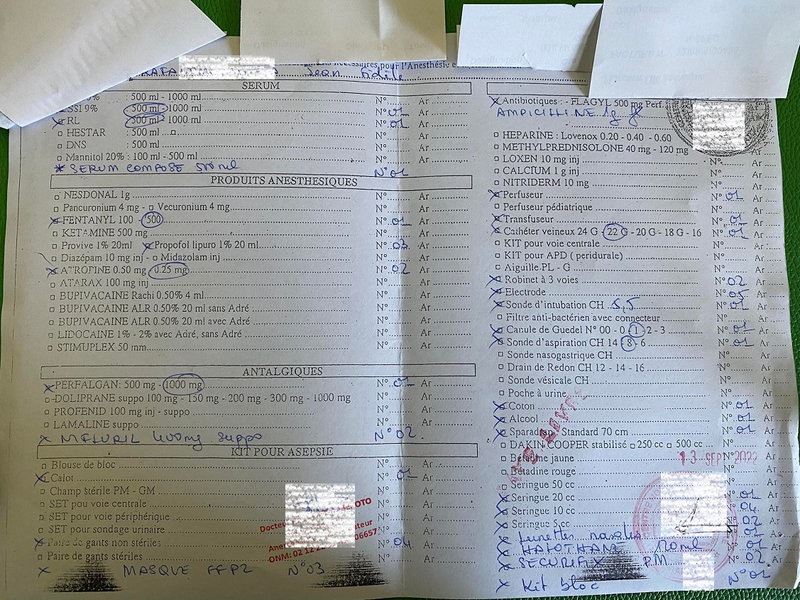 nécessaires pour l'Anesthésie e
Jean fidèle
SERUM
9% : 500 ml - 1000 ml N° 01 Ar
x RL : 500 ml - 1000 ml N° 01 Ar
HESTAR : 500 ml N° Ar
DNS : 500 ml N° Ar
Mannitol 20% : 100 ml - 500 ml N° Ar
* SERUM COMPOSE 500 ml N° 01
PRODUITS ANESTHESIQUES
NESDONAL 1g N° Ar
Pancuronium 4 mg - Vecuronium 4 mg N° Ar
x FENTANYL 100 - 500 N° 01 Ar
KETAMINE 500 mg N° Ar
Provive 1% 20ml x Propofol lipuro 1% 20 ml N° 03 Ar
Diazépam 10 mg inj - Midazolam inj N° Ar
x ATROFINE 0.50 mg - 0.25 mg N° 02 Ar
ATARAX 100 mg inj N° Ar
BUPIVACAINE Rachi 0.50% 4 ml N° Ar
BUPIVACAINE ALR 0.50% 20 ml sans Adré N° Ar
BUPIVACAINE ALR 0.50% 20 ml avec Adré N° Ar
LIDOCAINE 1% - 2% avec Adré, sans Adré N° Ar
STIMUPLEX 50 mm N° Ar
ANTALGIQUES
x PERFALGAN: 500 mg - 1000 mg N° 01 Ar
DOLIPRANE suppo 100 mg - 150 mg - 200 mg - 300 mg - 1000 mg N° Ar
PROFENID 100 mg inj - suppo N° Ar
LAMALINE suppo N° Ar
x 400mg suppo N° 02
KIT POUR ASEPSIE
Blouse de bloc N° Ar
x Calot N° 01 Ar
Champ stérile PM - GM N° Ar
SET pou voie centrale Ar
SET pour voie périphérique Ar
SET pour sondage urinaire Ar
x Paire de gants non stériles N° 04 Ar
Paire de gants stériles N° Ar
x MASQUE FFP2 N° 03
x Antibiotiques : - FLAGYL 500 mg Perf.
AMPICILLINE 1g
HEPARINE : Lovenox 0.20 - 0.40 - 0.60
METHYLPREDNISOLONE 40 mg - 120 mg
LOXEN 10 mg inj N° Ar
CALCIUM 1 g inj N° Ar
NITRIDERM 10 mg N° Ar
x Perfuseur N° 01 Ar
Perfuseur pédiatrique N° Ar
x Transfuseur N° 01 Ar
x Cathéter veineux 24 G - 22 G - 20 G - 18 G - 16 N° 01 Ar
KIT pour voie centrale N° Ar
KIT pour APD ( peridurale) N° Ar
Aiguille PL - G N° Ar
x Robinet à 3 voies N° 02 Ar
x Electrode N° 05 Ar
x Sonde d'intubation CH 5,5 N° 01 Ar
Filtre anti-bactérien avec connecteur N° Ar
x Canule de Guedel N° 00 - 0 - 1 - 2 - 3 N° 01 Ar
x Sonde d'aspiration CH 14 - 8 - 6 N° 01 Ar
Sonde nasogastrique CH N° Ar
Drain de Redon CH 12 - 14 - 16 N° Ar
Sonde vésicale CH N° Ar
Poche à urine N° Ar
x Coton N° 01 Ar
x Alcool N° 01 Ar
x Sparadrap Standard 70 cm N° 01 Ar
DAKIN COOPER stabilisé 250 cc 500 cc N° Ar
Bétadine jaune
Bétadine rouge
Seringue 50 cc
x Seringue 20 cc N° 01 Ar
x Seringue 10 cc N° 04
x Seringue 5 cc N° 02
x lunettes nasales 01
x HALOTHANE ml 01
x SECURIFIX PM 02
x Kit bloc N° 01
LIVRE
13 SEP 2022
Docteur
OTO
ONM: 02 12
06657